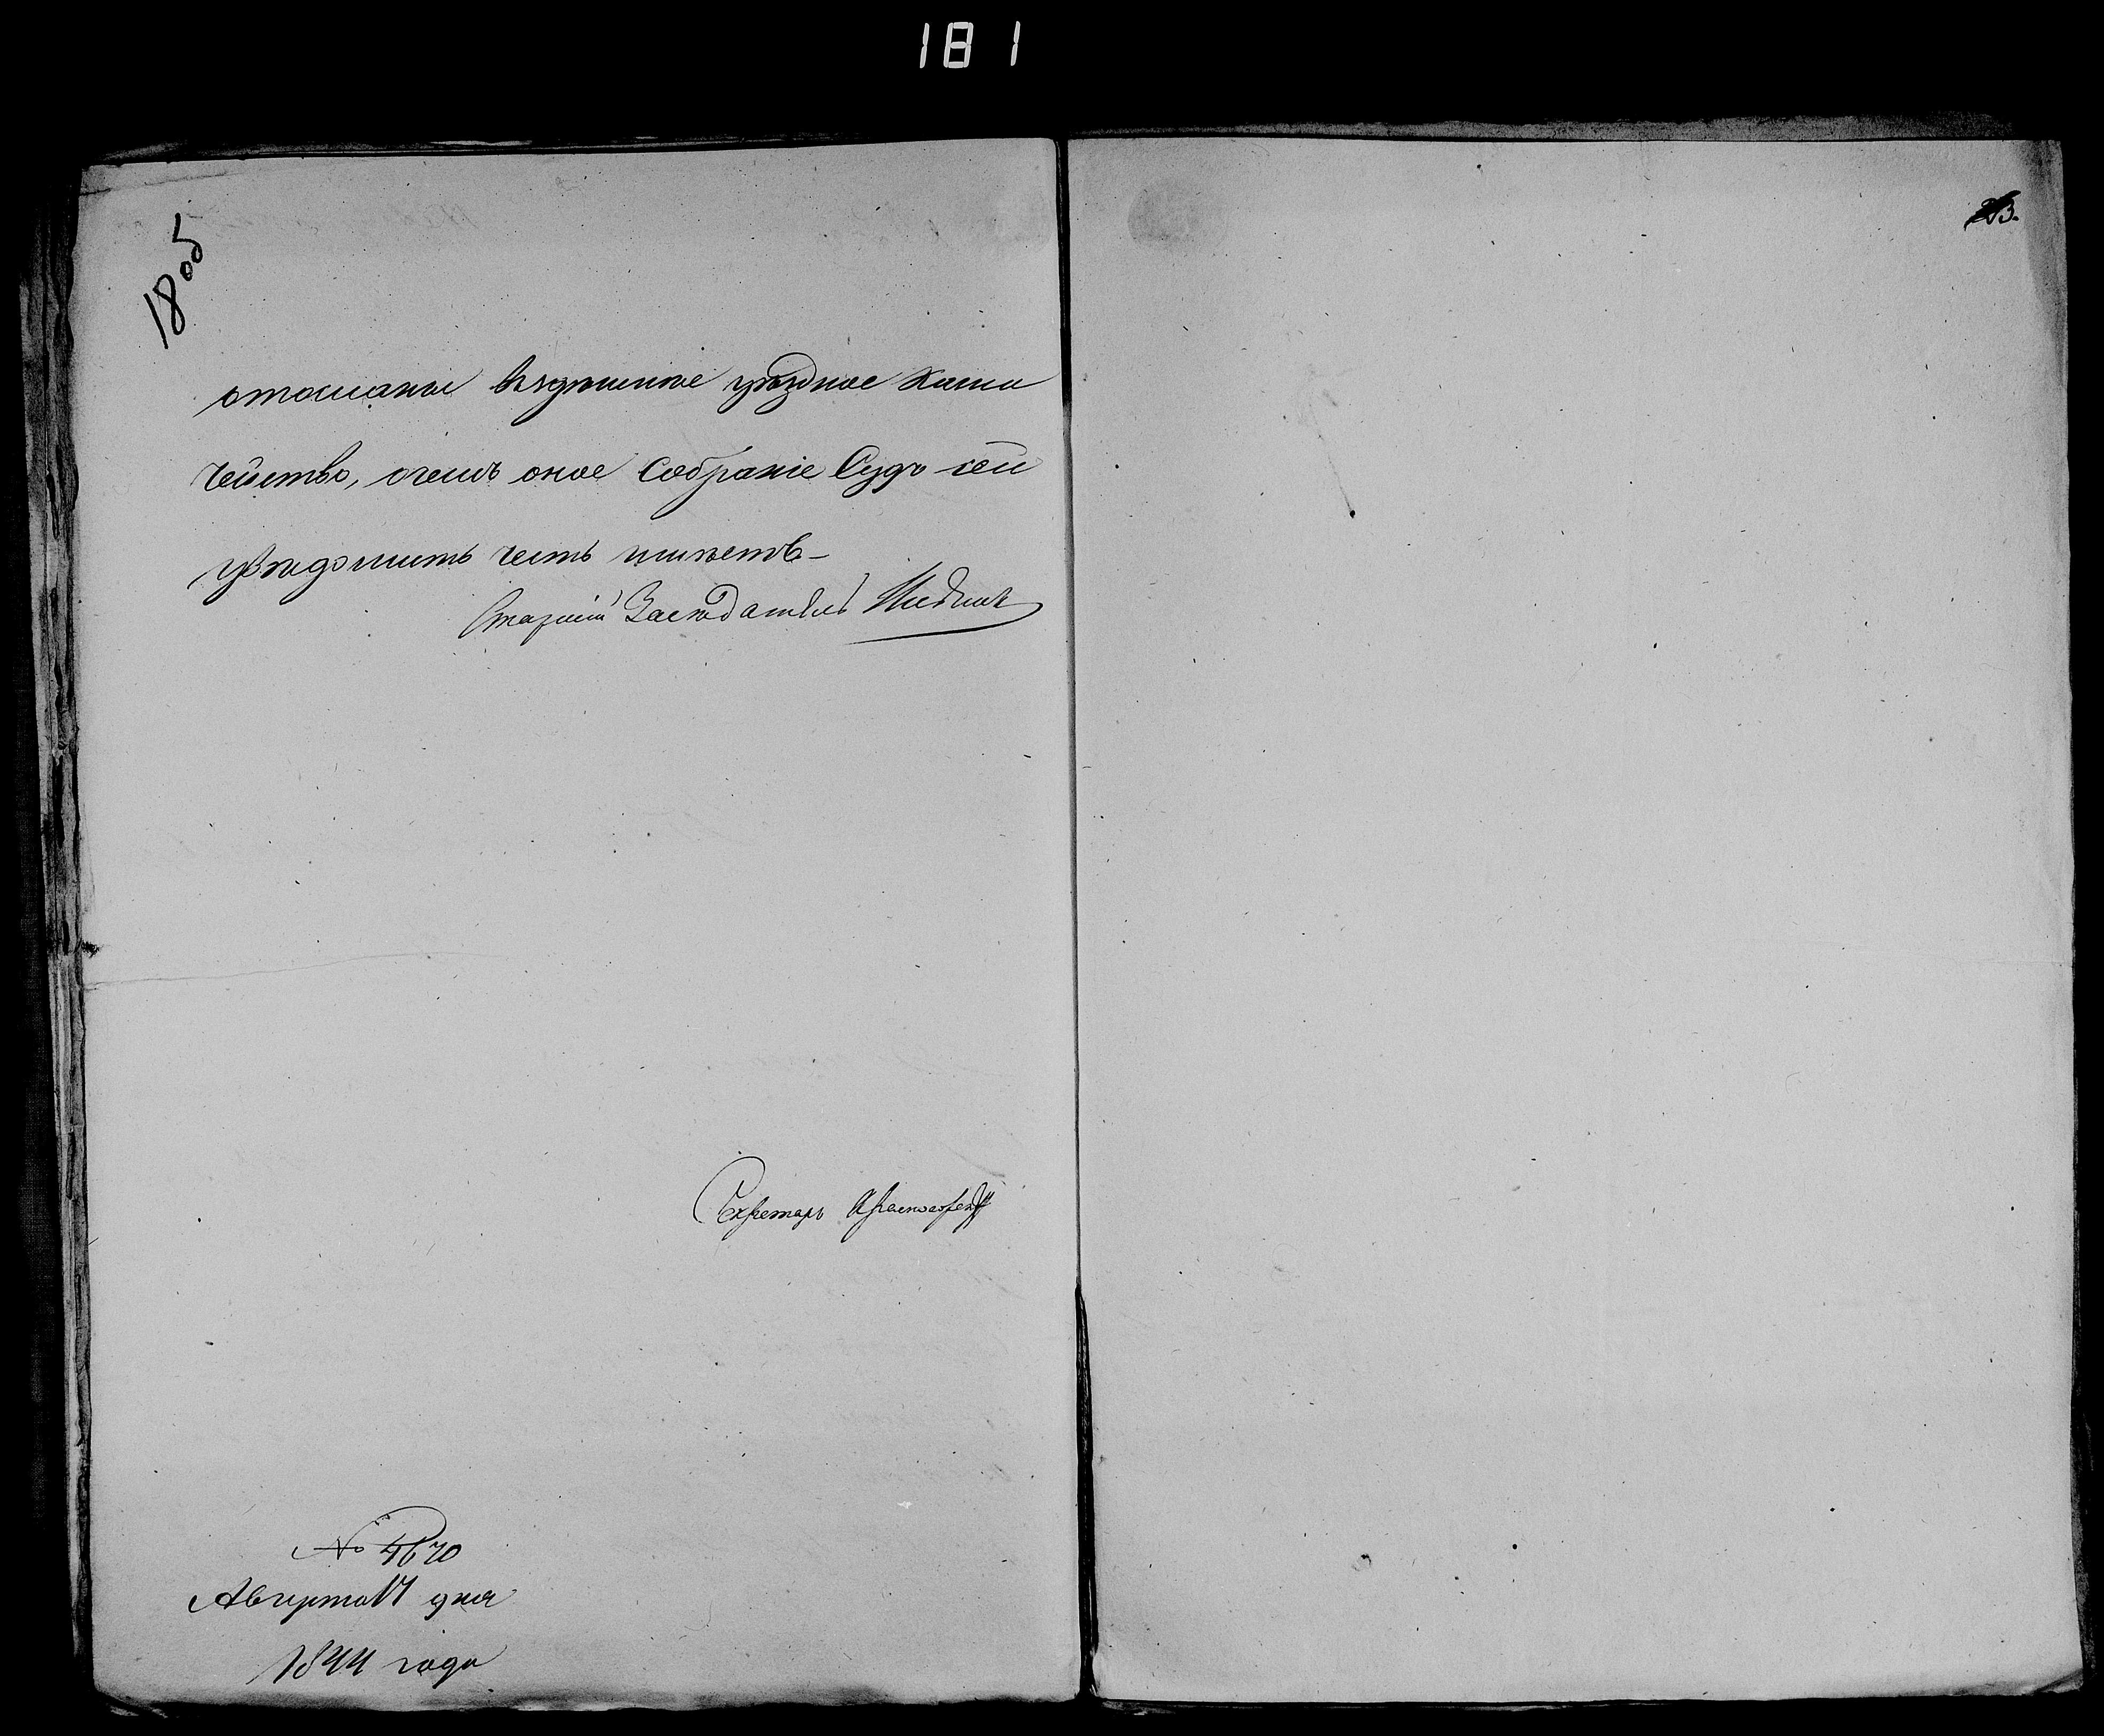 181
180об
отосланы вздешнее уѣздное Казна
чейство, очемъ оное Собраніе Судъ сей
увѣдомить честь имѣетъ —
Старшій Засѣдатель
Секретарь
№ 4670
Августа 17 дня
1844 года